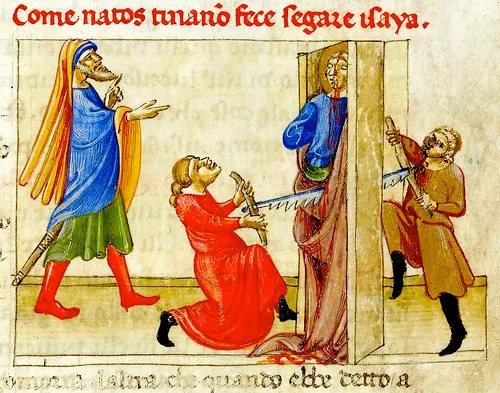 Come natos tiranō fece segare isaya.
laltra che quando ebbe detto a